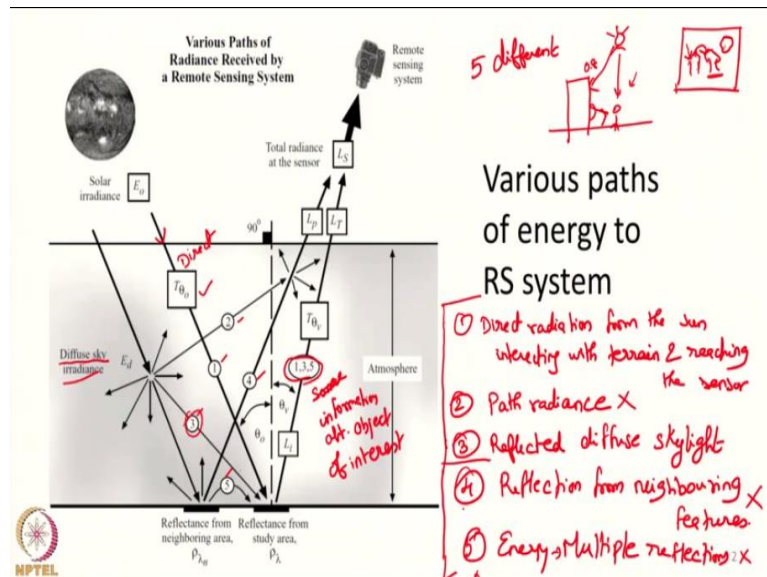 Various Paths of
Radiance Received by
a Remote Sensing System
Remote
sensing
system
Total radiance
at the sensor
L_S
Solar
irradiance
E_o
90°
L_p
L_T
Direct
T_θo
T_θv
2
1
4
1,3,5
Diffuse sky
irradiance
E_d
Atmosphere
θ_v
θ_o
3
5
L_i
Some
information
abt. object
of interest
Reflectance from
neighboring area,
ρ_λn
Reflectance from
study area,
ρ_λ
NPTEL
5 different
Various paths
of energy to
RS system
① Direct radiation from the sun
interacting with terrain & reaching
the sensor
② Path radiance X
③ Reflected diffuse skylight
④ Reflection from neighbouring X
features.
⑤ Energy → Multiple reflection X
2